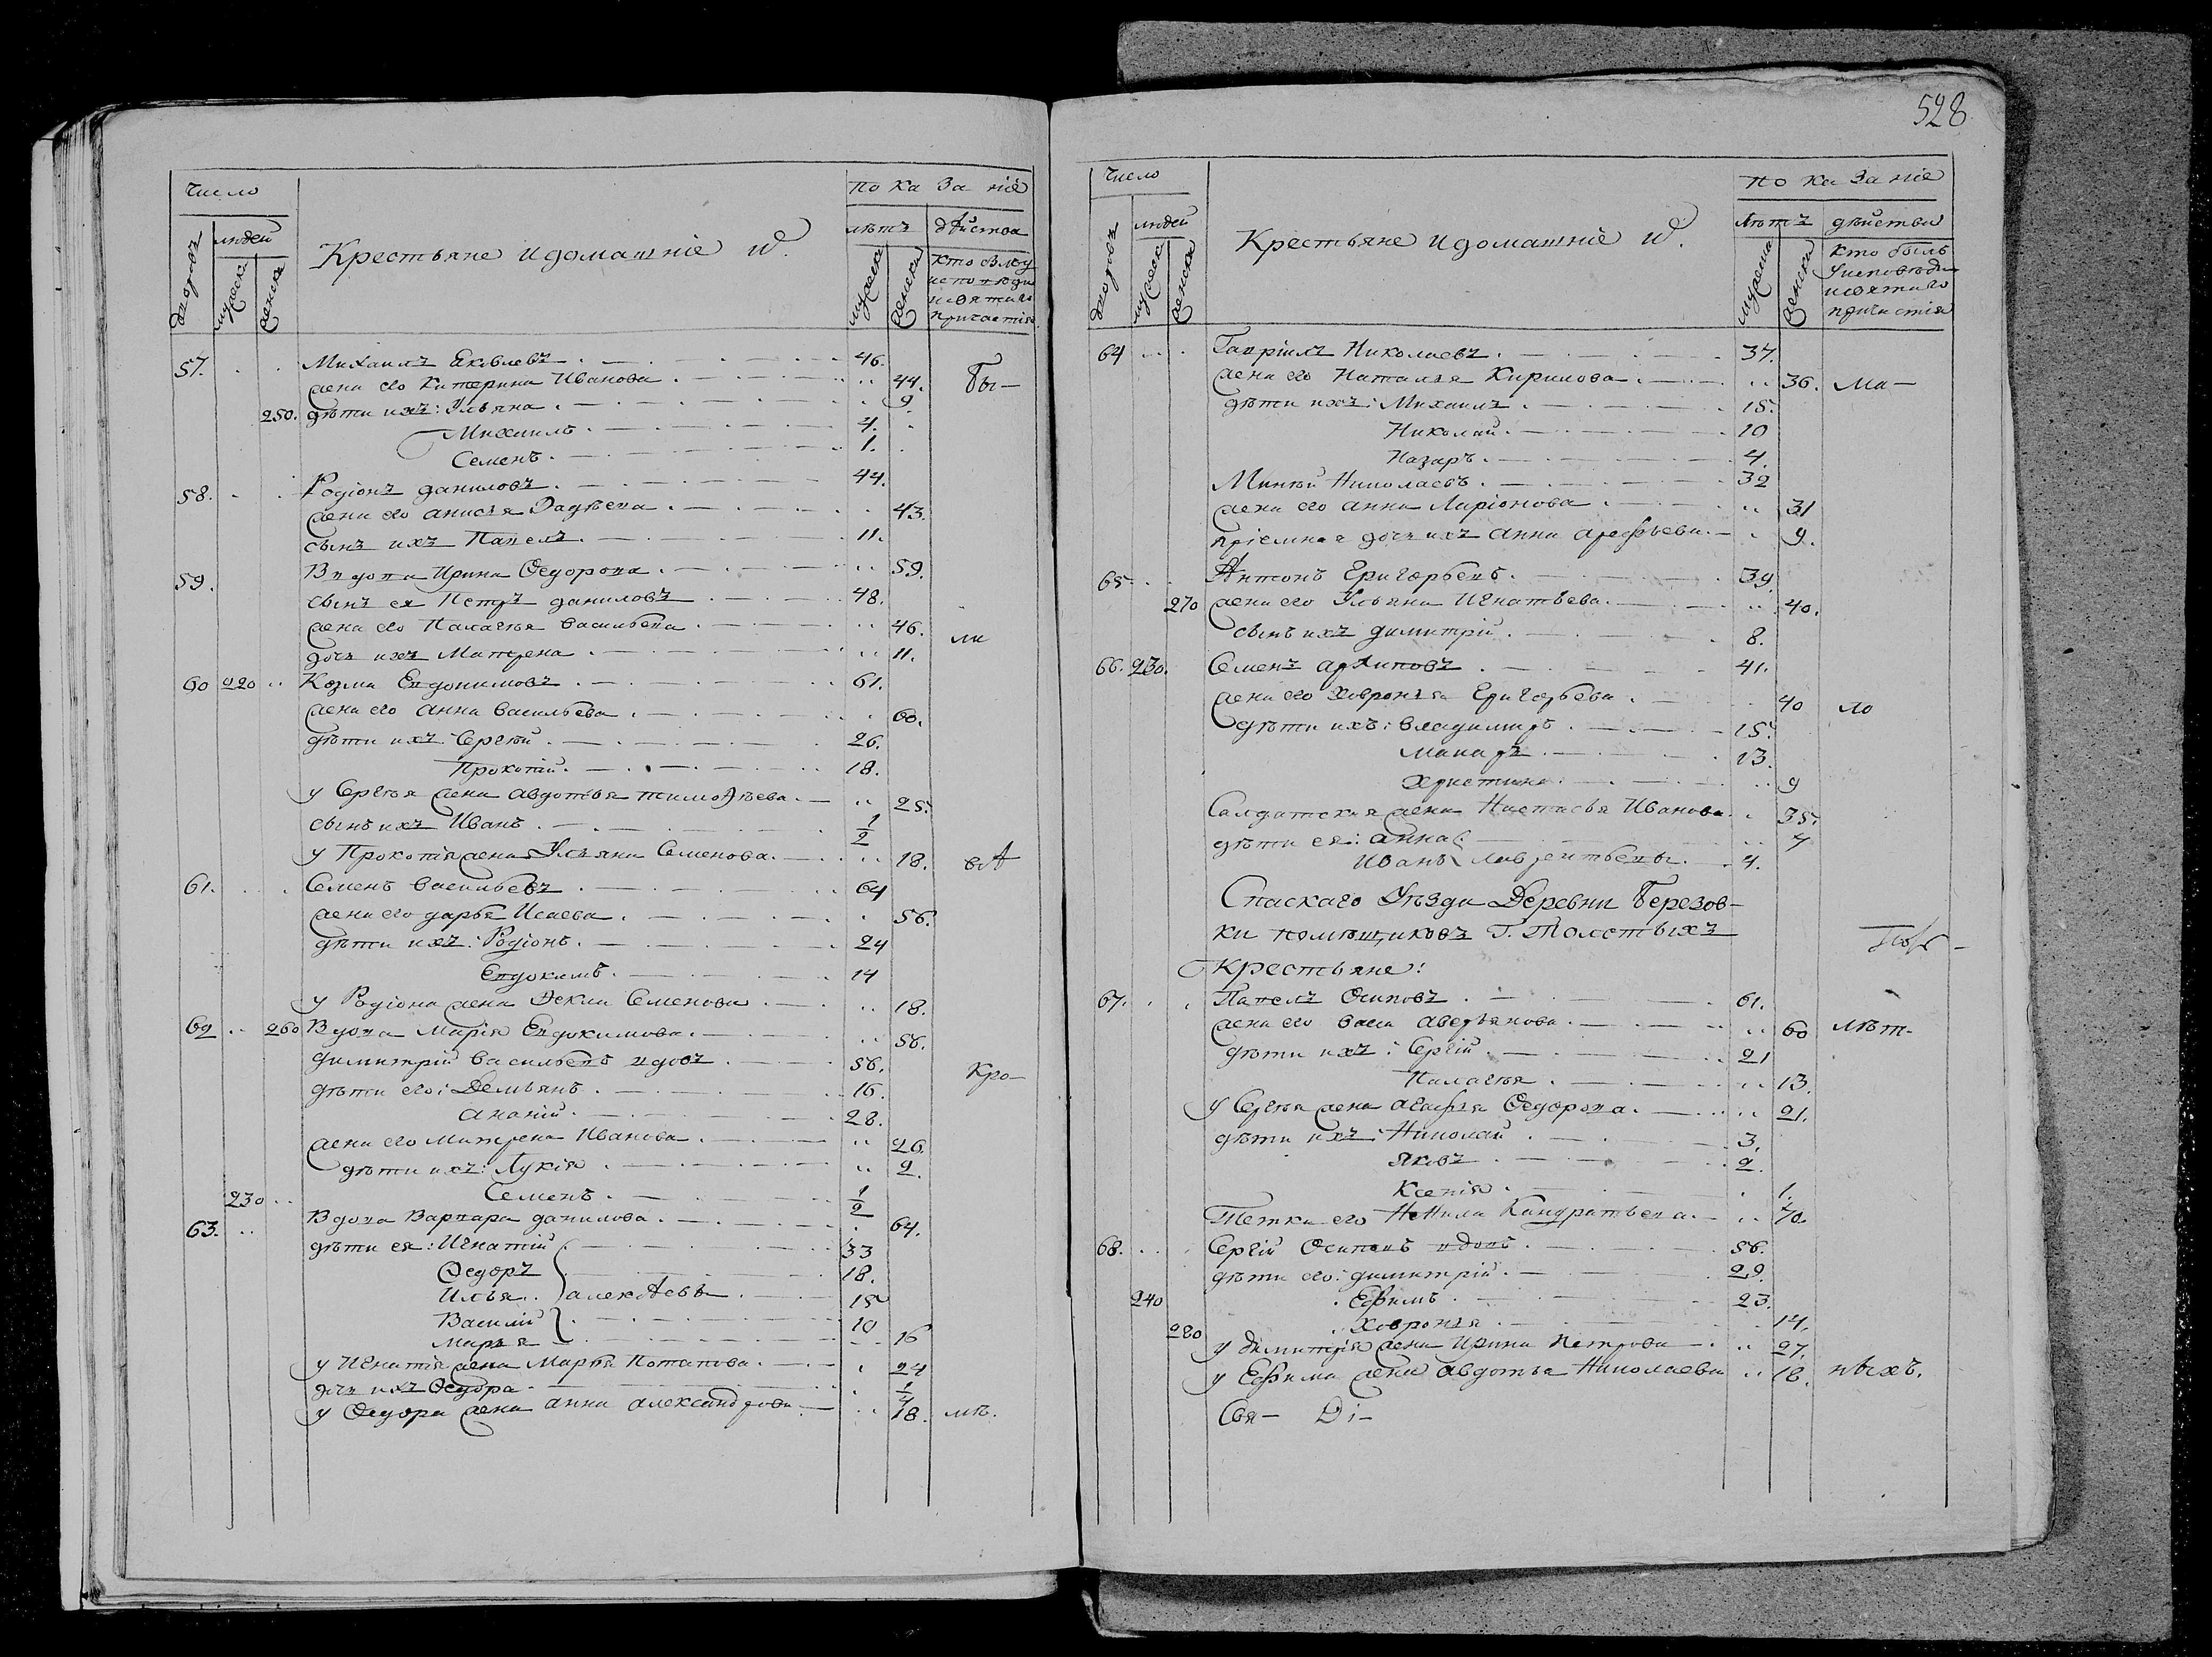 число
по ка за ніе
дворовъ
людей
мужска
женска
Крестьяне и домашніе ихъ
лѣтъ
дѣйства
мужеска
женска
кто былъ у
исповѣди
и святаго
причастія
57. Михаилъ Яковлевъ 46.
жена его Катерина Иванова 44. Бы-
250. дѣти ихъ: Ульяна 9
Михаилъ 4.
Семенъ 1.
58. Родіонъ даниловъ 44.
жена его анисья Фадѣева 43.
сынъ ихъ Павелъ 11.
59. Вдова Ирина Ѳедорова 59.
сынъ ея Петръ даниловъ 48.
жена его Палагѣя васильева 46. ли
дочь ихъ Матрена 11.
60 220 Козма Евдокимовъ 61.
жена его анна васильева 60.
дѣти ихъ: Сергѣй 26.
Прокопій 18.
у Сергѣя жена авдотья тимоѳѣева 25.
сынъ ихъ Иванъ 1/2
у Прокопія жена Ульяна Семенова 18. въ
61. Семенъ васильевъ 64
жена его дарья Исаева 56.
дѣти ихъ: Родіонъ 24
Евдокимъ 14
у Родіона жена Ѳекла Семенова 18.
62 260 Вдова Марія Евдокимова 58.
димитрій васильевъ вдовъ 56.
дѣти его: Демьянъ 16. Кро-
ананій 28.
жена его Матрена Иванова 26.
дѣти ихъ: Лукія 2.
230 Семенъ 1/2
63. Вдова Варвара данилова 64.
дѣти ея: Игнатій 33
Ѳедоръ 18.
Илья алексѣевы 15
Василій 10
марья 16
у Игнатія жена Марѳа Потапова 24
дочь ихъ Ѳедора 1/4
у Ѳедора жена анна александрова 18. мѣ.
528
число
по ка за ніе
дворовъ
людей
мужеска
женска
Крестьяне и домашніе ихъ
лѣтъ
дѣйства
мужеска
женска
кто былъ
у исповѣди
и святаго
причастія
64 Гавріилъ Николаевъ 37.
жена его Наталья Кирилова 36. ма-
дѣти ихъ: Михаилъ 15.
Николай 10
Назаръ 4.
Минѣй Николаевъ 32
жена его анна Ларіонова 31
пріемная дочь ихъ анна арефьева 9.
65. Антонъ Григорьевъ 39
270 жена его Ульяна Игнатьева 40.
сынъ ихъ димитрій 8.
66. 230. Семенъ архиповъ 41.
жена его Ховронья Григорьева 40 ло
дѣти ихъ: владимиръ 15.
Макаръ 13.
Христина 9
Салдатская жена Настасья Иванова 35.
дѣти ея: анна 7
Иванъ лаврентьевы 4.
Спаскаго Уѣзда Деревни Березов-
ки помѣщиковъ Г. Толстыхъ
крестьяне:
67. Павелъ Осиповъ 61.
жена его васса аверьянова 60 лѣт-
дѣти ихъ: Сергій 21
Палагѣя 13.
у Сергѣя жена агафья Ѳедорова 21.
дѣти ихъ: Николай 3.
Яковъ 2.
Ксенія 1.
Тетка его Ненила Кандратьева 70.
68. Сергій Осиповъ вдовъ 56.
дѣти его: димитрій 29.
240 Ефимъ 23.
280 Ховронья 14.
у димитрія жена Ирина Петрова 27.
у Ефима жена авдотья Николаева 18. ныхъ.
Свя- Ді-